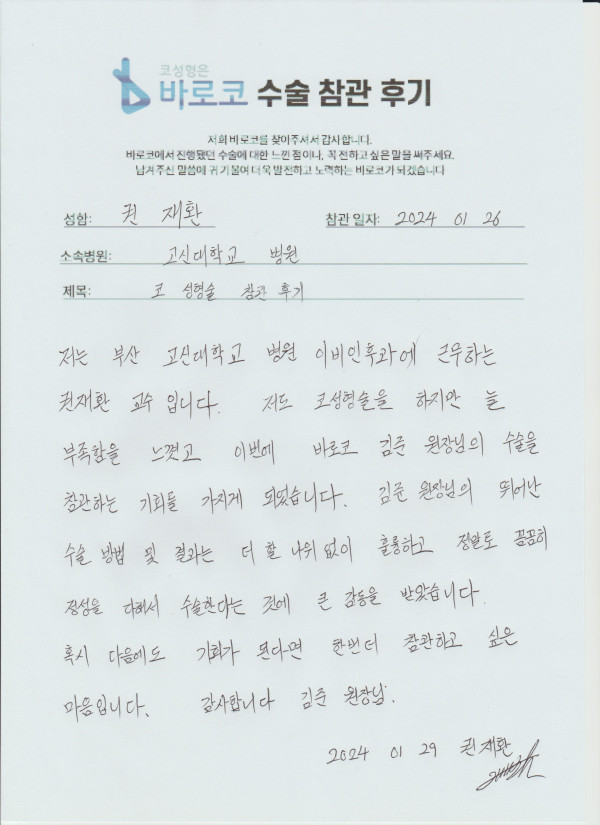 코성형은
바로코 수술 참관 후기
저희 바로코를 찾아주셔서 감사합니다.
바로코에서 진행됐던 수술에 대한 느낀 점이나, 꼭 전하고 싶은 말을 써주세요.
남겨주신 말씀에 귀 기울여 더욱 발전하고 노력하는 바로코가 되겠습니다
성함: 권 재환 참관 일자: 2024 01 26
소속병원: 고신대학교 병원
제목: 코 성형술 참관 후기
저는 부산 고신대학교 병원 이비인후과에 근무하는
권재환 교수 입니다. 저도 코성형술을 하지만 늘
부족함을 느꼈고 이번에 바로코 김준 원장님의 수술을
참관하는 기회를 가지게 되었습니다. 김준 원장님의 뛰어난
수술 방법 및 결과는 더 할 나위 없이 훌륭하고 정말로 꼼꼼히
정성을 다해서 수술한다는 것에 큰 감동을 받았습니다.
혹시 다음에도 기회가 된다면 한번더 참관하고 싶은
마음입니다. 감사합니다 김준 원장님.
2024 01 29 권재환